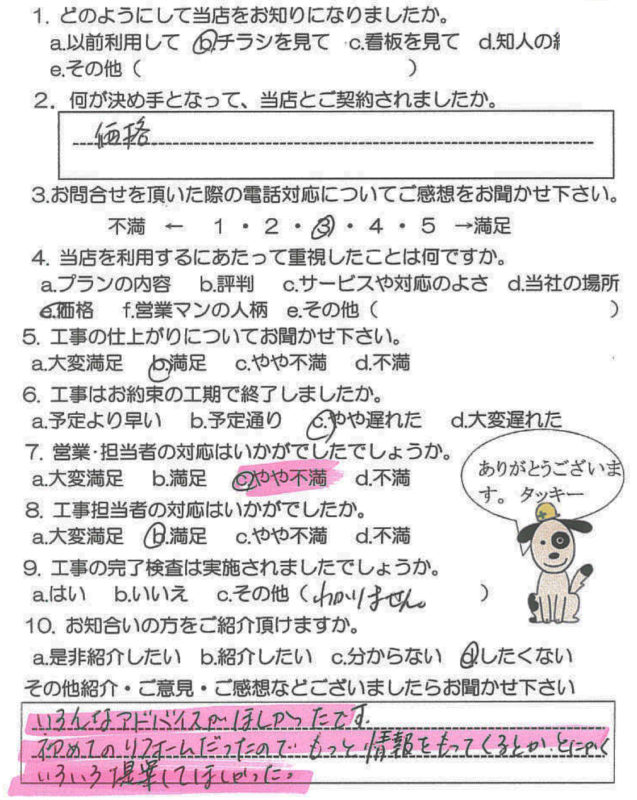 1. どのようにして当店をお知りになりましたか。
a.以前利用して b.チラシを見て c.看板を見て d.知人の
e.その他（ ）
2. 何が決め手となって、当店とご契約されましたか。
価格
3.お問合せを頂いた際の電話対応についてご感想をお聞かせ下さい。
不満 ← 1・2・3・4・5 →満足
4. 当店を利用するにあたって重視したことは何ですか。
a.プランの内容 b.評判 c.サービスや対応のよさ d.当社の場所
e.価格 f.営業マンの人柄 e.その他（ ）
5. 工事の仕上がりについてお聞かせ下さい。
a.大変満足 b.満足 c.やや不満 d.不満
6. 工事はお約束の工期で終了しましたか。
a.予定より早い b.予定通り c.やや遅れた d.大変遅れた
7. 営業・担当者の対応はいかがでしたでしょうか。
a.大変満足 b.満足 c.やや不満 d.不満
ありがとうございま
す。 タッキー
8. 工事担当者の対応はいかがでしたか。
a.大変満足 b.満足 c.やや不満 d.不満
9. 工事の完了検査は実施されましたでしょうか。
a.はい b.いいえ c.その他（わかりません。 ）
10. お知合いの方をご紹介頂けますか。
a.是非紹介したい b.紹介したい c.分からない d.したくない
その他紹介・ご意見・ご感想などございましたらお聞かせ下さい
いろんなアドバイスがほしかったです.
初めてのリフォームだったので もっと情報をもってくるとか、とにかく
いろいろ提案してほしかった。